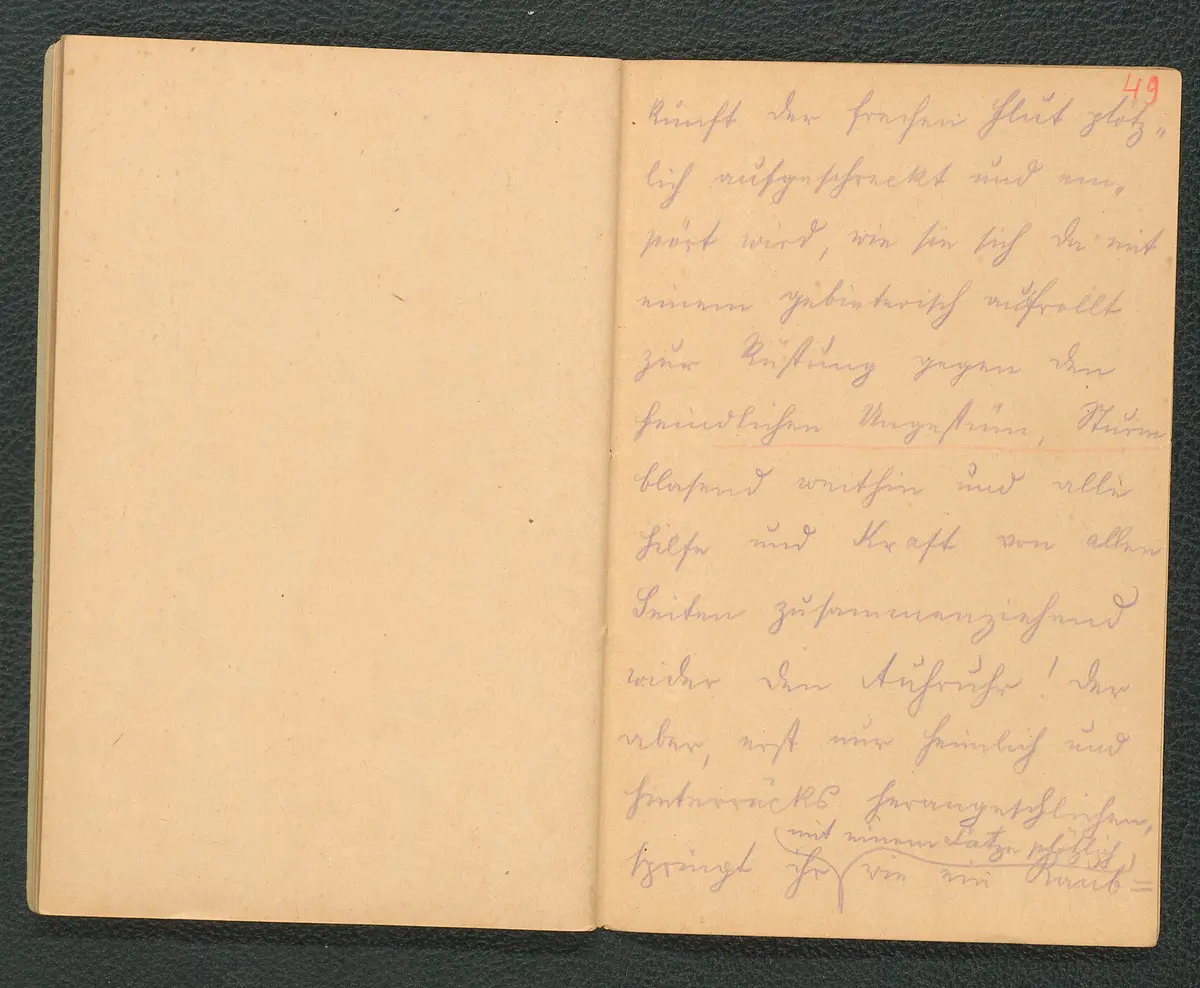 49
kunft der frechen Flut plötz-
lich aufgeschreckt und em-
pört wird, wie sie sich da mit
einem gebieterisch aufrollt
zur Rüstung gegen den
feindlichen Ungestüm, Sturm
blasend weithin und alle
Hilfe und Kraft von allen
Seiten zusammenziehend
wider den Aufruhr! Der
aber, erst nur heimlich und
hinterrücks herangeschlichen,
mit einem Satze plötzlich
springt ihr wie ein Raub=